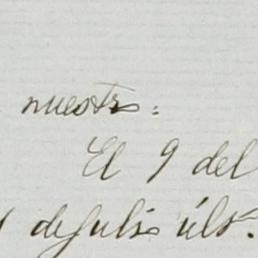 nuestro:
El 9 del
de Julio últº.